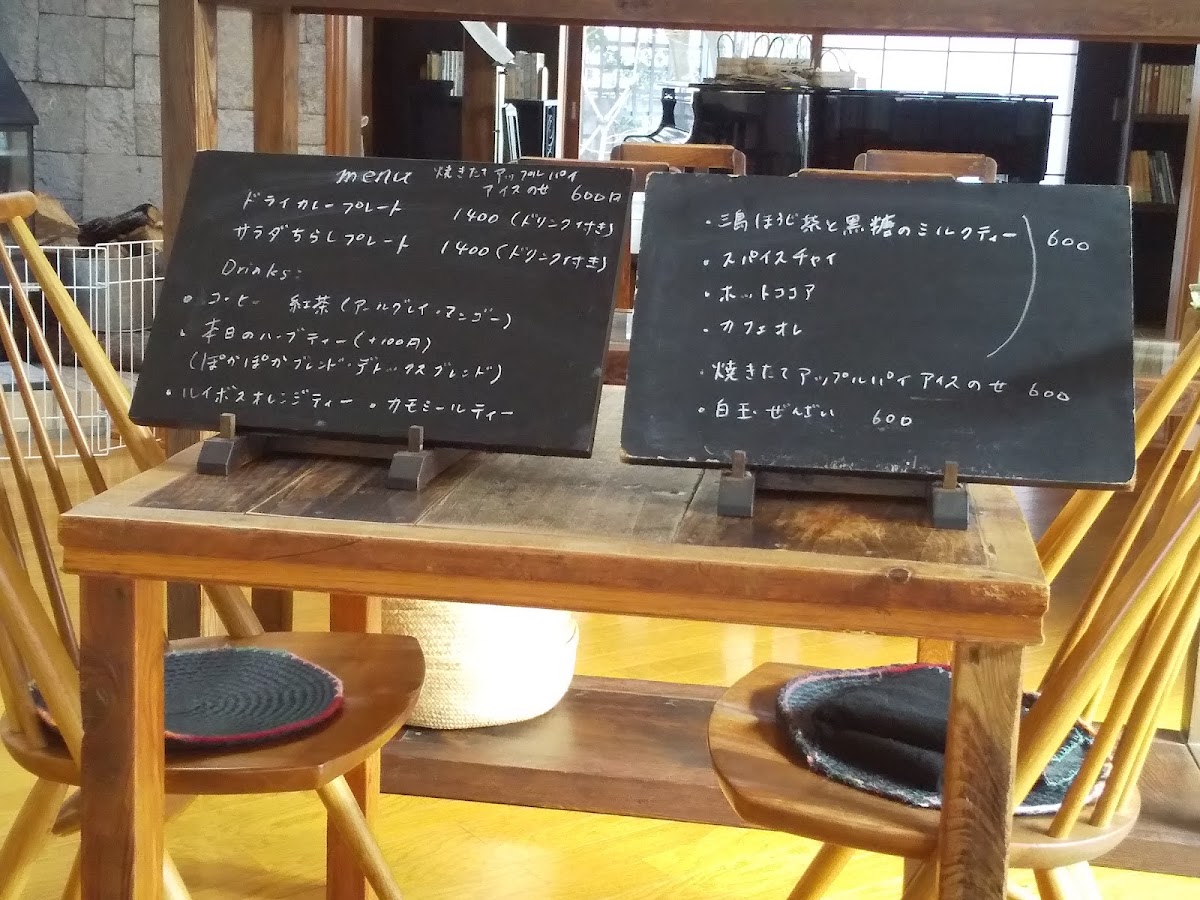 menu 焼きたてアップルパイ
アイスのせ 600円
ドライカレープレート 1400(ドリンク付き)
サラダちらしプレート 1400(ドリンク付き)
Drinks:
• コーヒー 紅茶(アールグレイ・マンゴー)
• 本日のハーブティー(+100円)
(ぽかぽかブレンド・デトックスブレンド)
• ルイボスオレンジティー • カモミールティー
・三島ほうじ茶と黒糖のミルクティー 600
・スパイスチャイ
・ホットココア
・カフェオレ
・焼きたてアップルパイ アイスのせ 600
・白玉ぜんざい 600